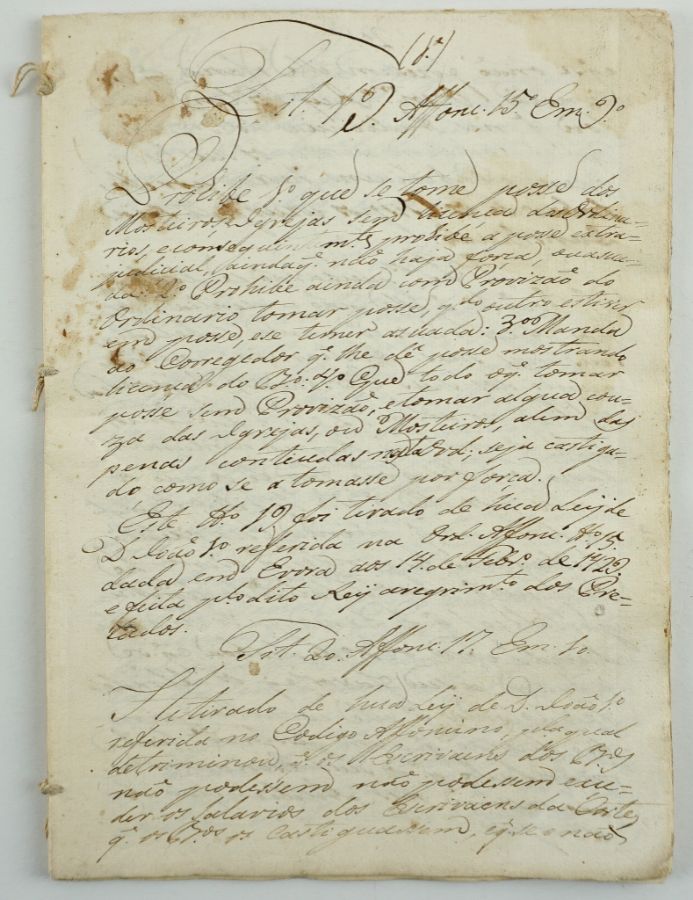 (87)
Tit. 19. Affonc. 15. Em. 9º
Prohibe 1º que se tome posse dos
Mosteiros, Igrejas sem licença dos Ordina-
rios, e consequintemte prohibe a posse extra-
judicial, (aindaq. não haja força, ou aju-
da: 2º Prohibe ainda com Provizão do
Ordinario tomar posse, qdo outro estiver
em posse, e se temer asdada: 3º Manda
ao Corregedor q. lhe dê posse mostrando
licença do Bº. 4º Que todo o q. tomar
posse sem Provizão, e tomar algua cou-
za das Igrejas, ou Mosteiros, alem das
penas contiudas nesta Ord; seja castiga-
do como se a tomasse por força.
Este ttº 19 foi tirado de hua Ley de
D. João 1º referida na Ord. Affonc. ttº 15
dada em Evora aos 14. de Febrº. de 1423,
e feita plo dito Rey a requerimto dos Pre-
lados.
Tit. 20. Affonc. 17. Em. 10.
He tirado de hua Ley de D. João 1º
referida no Codigo Affoncino, pla qual
detriminou, os Escrivaens dos
não podessem não podessem exce-
der os salarios dos Escrivaens da Corte,
q. os os castiguassem, e q. se o não